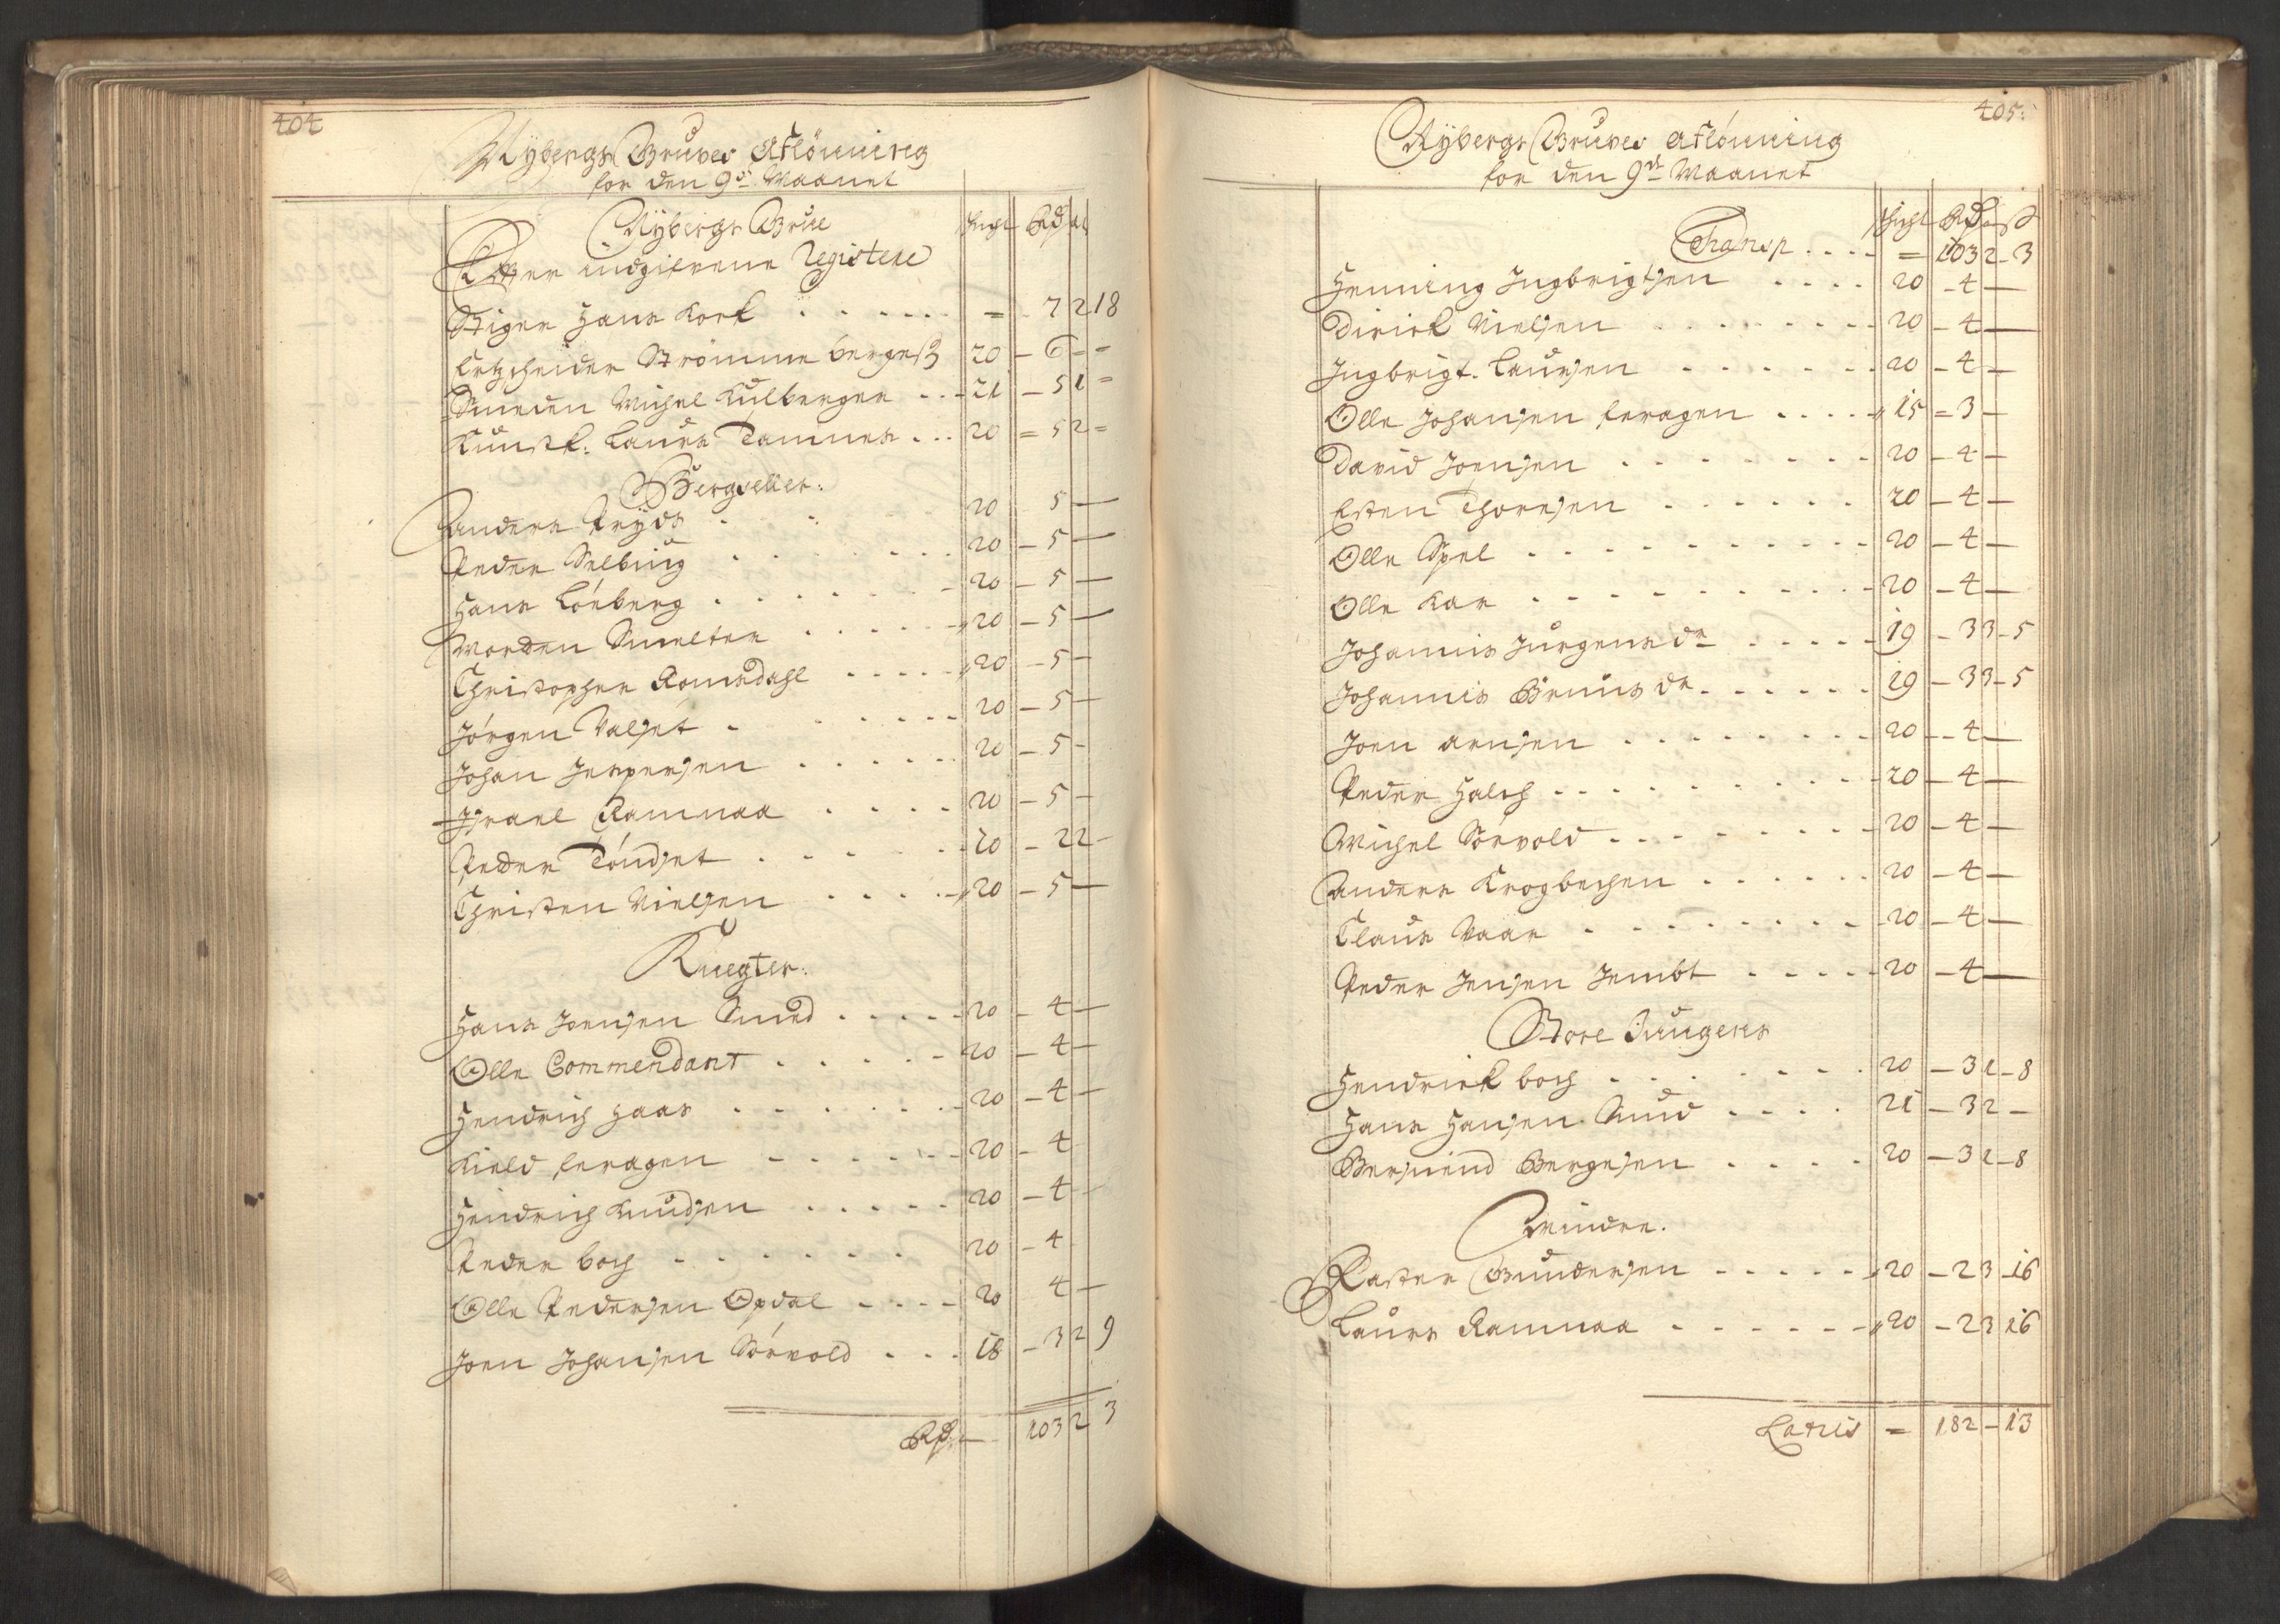 404
Nybergs Gruves Aflönning
for den 9de Maanet
Nybergs Grue
Schgt Rdr ort
Efter indgifvene Registere
Stiger Hans Kork . . . . . = 7 2 18
Strömme bergesz 20 – 6 – –
Smeden Michel Kulberger . . 21 – 5 1 =
Kunstk: Laurs Tamnes . . . 20 = 5 2 =
Bergseller:
Anders Prÿds . . . 20 5 –
Peder Selbüg . . . . . 20 – 5 –
Hans Lönberg . . . . . 20 – 5 –
Morden Smelter . . . . 20 – 5 –
Christopher Romsdahl . . . . 20 – 5 –
Jörgen Valset . . . . . 20 – 5 –
Johan Jespersen . . . . . 20 – 5 –
Israel Ramnaa . . . . 20 – 5 –
Peder Töndset . . . . . 20 – 2 2 –
Christen Nielsen . . . . 20 – 5 –
Knegter:
Hans Joensen Smed . . . . . 20 – 4 –
Olle Commendant . . . . . 20 – 4 –
Hendrich Haas . . . . . . 20 – 4 –
Kield feragen . . . . . . 20 – 4
Hendrich Knudsen . . . . . 20 – 4 –
Peder boch . . . . . . . 20 – 4
Olle Pedersen Opdal . . . . 20 4 –
Joen Johansen Sörvold . . . 18 – 3 2 9
Rdr – 103 2 3
405:
Nybergs Gruves Aflönning
for den 9de Maanet
Schgt Rdr ort ß
Transp . . . . = 103 2 – 3
Henning Ingbrigtsen . . . . 20 – 4 –
Dirick Nielsen . . . . . . . 20 – 4 –
Ingbrigt. Laursen . . . . . . 20 – 4 –
Olle Johansen feragen . . . . 15 = 3 –
David Joensen . . . . . . . 20 – 4 –
Esten Thoresen . . . . . . 20 – 4 –
Olle Spel . . . . . . . . . . 20 – 4 –
Olle Kar . . . . . . . . . . 20 – 4 –
Johannis Jürgens dr . . . . . 19 – 3 3 – 5
Johannis Böens dr . . . . . . 19 – 3 3 – 5
Joen arnsen . . . . . . . . 20 – 4 –
Peder Halch . . . . . . . . . 20 – 4 –
Michel Sörvold . . . . . . . 20 – 4 –
Anders Krogbechen . . . . . . 20 – 4 –
Claus Vaar . . . . . . . . 20 – 4 –
Peder Jensen Jembt . . . . . 20 – 4 –
Store Jungens
Hendrick boch . . . . . . . 20 – 3 1 – 8
Hans Hansen Smid . . . . 21 – 3 2 –
Bersvend Bergesen . . . . 20 – 3 1 – 8
Mindre.
Paster Gundersen . . . . . 20 – 2 3 – 16
Laurs Ramnaa . . . . . . . 20 – 2 3 16
Latus = 182 – 13